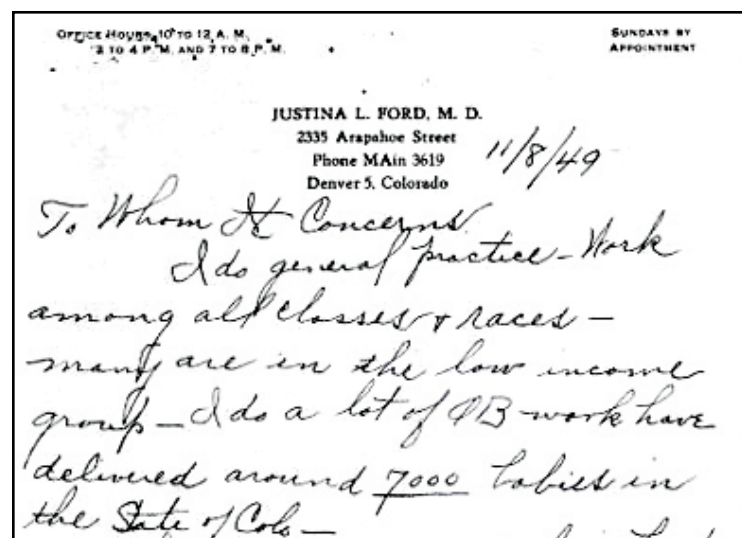 OFFICE HOURS, 10 TO 12 A. M.
2 TO 4 P. M. AND 7 TO 8 P. M.
SUNDAYS BY
APPOINTMENT
JUSTINA L. FORD, M. D.
2335 Arapahoe Street
Phone MAin 3619
Denver 5, Colorado
11/8/49
To Whom It Concerns
I do general practice - Work
among all classes & races -
many are in the low income
group - I do a lot of OB work have
delivered around 7000 babies in
the State of Colo -